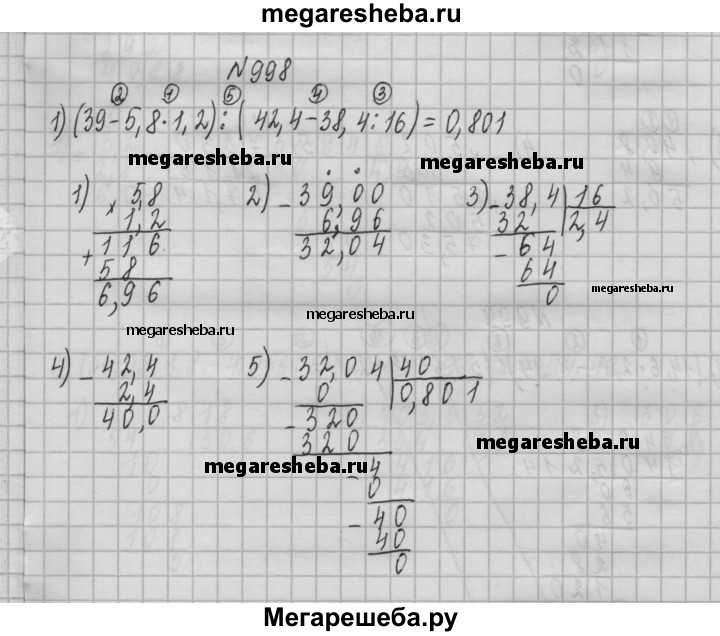 megaresheba.ru
№998
② ① ⑤ ④ ③
1) (39-5,8·1,2):(42,4-38,4:16)=0,801
megaresheba.ru megaresheba.ru
1) × 5,8
1,2
+ 116
58
6,96
2) - 39,00
6,96
32,04
3) - 38,4 | 16
32 2,4
- 64
64
0
megaresheba.ru
megaresheba.ru
megaresheba.ru
4) - 42,4
2,4
40,0
5) - 32,04 | 40
0 0,801
- 320
320
- 4
0
- 40
40
0
megaresheba.ru
megaresheba.ru
Мегарешеба.ру